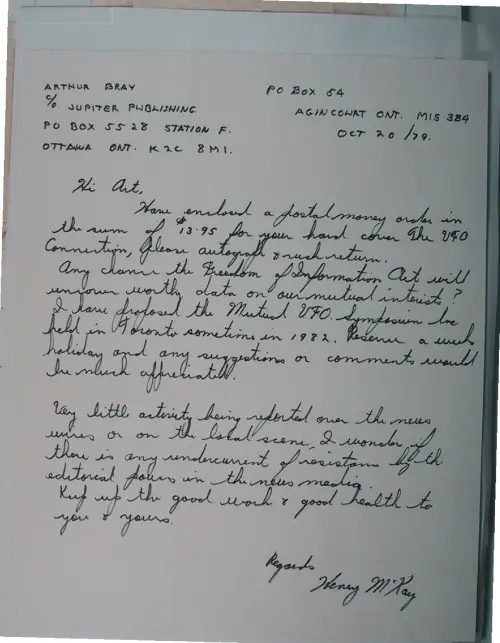 ARTHUR BRAY
c/o JUPITER PUBLISHING
PO BOX 5528 STATION F.
OTTAWA ONT. K2C 8M1.
PO BOX 54
AGINCOURT ONT. M1S 3B4
OCT 20/79.
Hi Art,
Have enclosed a postal money order in
the sum of $13.95 for your hard cover The UFO
Connection, please autograph & rush return.
Any chance the Freedom of Information Act will
uncover worthy data on our mutual interests?
I have proposed the Mutual UFO. Symposium be
held in Toronto sometime in 1982. Reserve a week
holiday and any suggestions or comments would
be much appreciated.
Very little activity being reported over the news
wires or on the local scene, I wonder if
there is any undercurrent of resistance by th
editorial powers in the news media.
Keep up the good work & good health to
you & yours.
Regards
Henry McKay